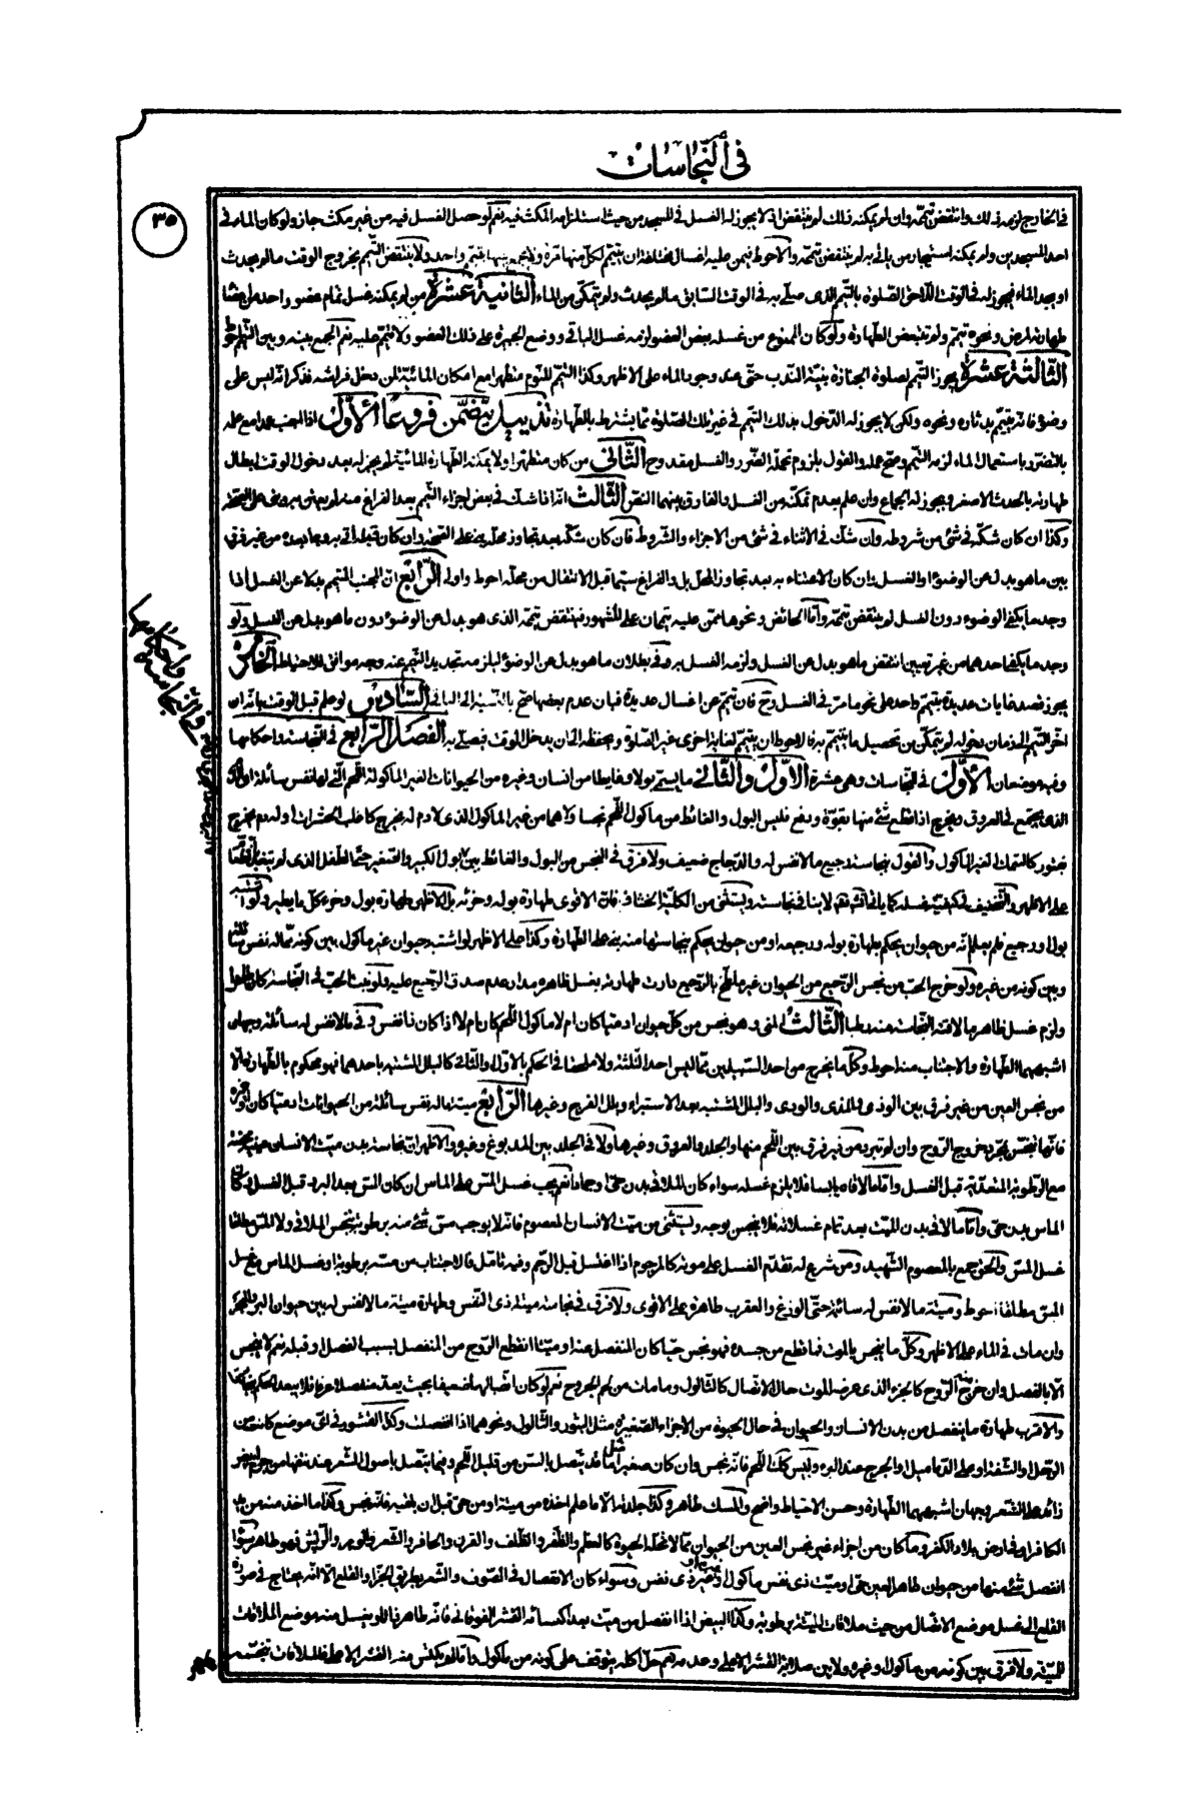 في النّجاسات
٣٥
في الخارج لزمه ذلك وانتقض تيمّمه وان لم يمكنه ذلك لم ينتقض اذ لا يجوز له الغسل في المسجد من حيث استلزامه المكث فيه نعم لو حصل الغسل فيه من غير مكث جاز ولو كان الماء في
احد المسجدين ولم يمكنه استيجار من يأتي به لم ينتقض تيمّمه والاحوط فيمن عليه اغسال مختلفة ان يتيمّم لكلّ منها مرّة ولا يجمع بينها بتيمّم واحد ولا ينتقض التّيمم بخروج الوقت ما لم يحدث
او يجد الماء فيجوز له في الوقت اللّاحق الصّلوة بالتّيمم الذى صلّى به في الوقت السّابق ما لم يحدث ولم يتمكّن من الماء الثّانية عشرة من لم يمكنه غسل تمام عضو واحد من اعضاء
طهارته لمرض ونحوه تيمّم ولم تتبعّض الطّهارة ولو كان الممنوع من غسله بعض العضو لزمه غسل الباقي ووضع الجبيرة على ذلك العضو ولا تيمّم عليه نعم الجمع بينه وبين التّيمم احوط
الثّالثة عشرة يجوز التّيمم لصلوة الجنازة بنيّة النّدب حتّى عند وجود الماء على الاظهر وكذا التّيمم للنّوم متطهرا مع امكان المائيّة لمن دخل فراشه فذكر انّه ليس على
وضوء فانه يتيمّم بدثاره ونحوه ولكن لا يجوز له الدّخول بذلك التّيمم في غير تلك الصّلوة ممّا يشترط بالطّهارة تذييل يتضمّن فروعا الأوّل اذا اجنب عمدا مع علمه
بالتضرّر باستعمال الماء لزمه التّيمم وصحّ عمله والقول بلزوم تحمّله الضّرر والغسل مقدوح الثّاني من كان متطهرا ولا يمكنه الطّهارة المائيّة لم يجز له بعد دخول الوقت ابطال
طهارته بالحدث الاصغر ويجوز له الجماع وان علم بعدم تمكّنه من الغسل والفارق بينهما النصّ الثّالث اذا شكّ في بعض اجزاء التّيمم بعد الفراغ منه لم يعتن به وبنى على الصّحة
وكذا ان كان شكّه في شئ من شروطه وان شكّ في الاثناء في شئ من الاجزاء والشّروط فان كان شكّه بعد تجاوز محلّه بنى على الصّحة وان كان قبله اتى به وما بعده من غير فرق
بين ما هو بدل عن الوضوء او الغسل وان كان الاعتناء به بعد تجاوز المحلّ بل والفراغ سيّما قبل الانتقال من محلّه احوط واولى الرّابع انّ المجنب المتيمّم بدلا عن الغسل اذا
وجد ما يكفي الوضوء دون الغسل لم ينتقض تيمّمه وأمّا الحائض ونحوها ممّن عليه تيمّمان على المشهور فينتقض تيمّمه الذى هو بدل عن الوضوء دون ما هو بدل عن الغسل ولو
وجد ما يكفي احدهما من غير تعيين انتقض ما هو بدل عن الغسل ولزمه الغسل به وفي بطلان ما هو بدل عن الوضوء ليلزمه تجديد التّيمم عنه وجه موافق للاحتياط الخامس
يجوز قصد غايات عديدة بتيمّم واحد على نحو ما مرّ في الغسل ومع تيمّم عن اغسال عديدة فبان عدم بعضها صحّ بالنّسبة الى الباقي السّادس لو علم قبل الوقت بانّه ان
اخّر التّيمم الى زمان دخوله لم يتمكّن من تحصيل ما يتيمّم به فالاحوط ان يتيمّم لغاية اخرى غير الصّلوة ويحفظه الى ان يدخل الوقت فيصلّي به الفصل الرّابع في النّجاسة واحكامها
وفيه موضعان الأوّل في النّجاسات وهي عشرة الاوّل والثّاني ما يسمّى بولا وغايطا من انسان وغيره من الحيوانات الغير المأكولة اللّحم التي لها نفس سائلة اي الدّم
الذى يجتمع في العروق ويخرج اذا قطع شئ منها بقوّة ودفع فليس البول والغائط من مأكول اللّحم نجسا ولا هما من غير المأكول الذى لا دم له يخرج كاغلب الحشرات او له دم يخرج
بفتور كالسّمك الغير المأكول والقول بنجاسة رجيع ما لا نفس له والدّجاج ضعيف ولا فرق في النّجس من البول والغائط بين بول الكبير والصّغير حتّى الطّفل الذى لم يتغذّ بالطّعام
على الاظهر والتّخفيف في كيفيّة غسله كما يأتي انشاء الله لا ينافي نجاسته ويستثنى من الكليّة الخشّاف فانّ الاقوى طهارة بوله وخرئه بل الاظهر طهارة بول وخرء كلّ ما يطير ولو اشتبه
بول او رجيع فلم يعلم انّه من حيوان يحكم بطهارة بوله ورجيعه او من حيوان يحكم بنجاستهما منه بنى على الطّهارة وكذا على الاظهر لو اشتبه حيوان غير مأكول بين كونه ممّا له نفس سائلة
وبين كونه من غيره ولو خرج الحبّ من نجس الرّجيع من الحيوان غير ملطّخ بالرّجيع دارت طهارته بغسل ظاهره مدار عدم صدق الرّجيع عليه ولو نبت الحبّ في النّجاسة كان طاهرا
ولزم غسل ظاهره الملاقي للنّجاسة عند رطبا الثّالث المني وهو نجس من كلّ حيوان ادميّا كان ام لا مأكول اللّحم كان ام لا اذا كان ذا نفس وفي ما لا نفس له سائلة وجهان
اشبههما الطّهارة والاجتناب منه احوط وكلّ ما يخرج من احد السّبيلين ممّا ليس احد الثّلثة ولا ملحقا في الحكم بالاوّل والثّاني كالبلل المشتبه باحدهما فهو محكوم بالطّهارة الّا
من نجس العين من غير فرق بين الوذى والمذى والودى والبلل المشتبه بعد الاستبراء وبلل الفرج وغيرها الرّابع ميتة ما له نفس سائلة من الحيوانات ادميّا كان او غيره
فانّها نجس بمجرّد خروج الرّوح وان لم تبرد من غير فرق بين اللّحم منها والجلد والعروق وغيرها ولا في الجلد بين المدبوغ وغيره والاظهر انّ نجاسة بدن ميت الانسان
مع الرّطوبة المتعدّية قبل الغسل وامّا ملاقاه يابسا فلا يلزم غسله سواء كان الملاقي بدن حيّ او جمادا نعم يجب غسل المسّ على الماس ان كان المسّ بعد البرد وقبل الغسل وكان
الماس بدن حيّ وامّا ما لاقى بدن الميّت بعد تمام غسلاته فلا ينجس بوجه ويستثنى من ميّت الانسان المعصوم فانّه لا يوجب مسّ شئ منه برطوبة تنجّس الملاقي ولا المسّ مطلقا
غسل المسّ والحق جمع بالمعصوم الشّهيد ومن شرع له تقدّم الغسل على موته كالمرجوم اذا اغتسل قبل الرّجم وفيه تأمّل فالاجتناب من مسّه برطوبة وغسل الماس مع غسل
المسّ مطلقا احوط وميتة ما لا نفس له سائلة حتّى الوزغ والعقرب طاهرة على الاقوى ولا فرق في نجاسة ميتة ذى النّفس وطهارة ميتة ما لا نفس له بين حيوان البرّ والبحر
وان مات في الماء على الاظهر وكلّ ما ينجس بالموت فما قطع من جسده فهو نجس حيّا كان المنفصل عنه او ميّتا انقطع الرّوح من المنفصل بسبب الفصل او قبله نعم لا ينجس
الّا بالفصل وان خرج منه الرّوح كالجزء الذى عرضه الموت حال الاتّصال كالثّالول وما مات من لحم الجروح نعم لو كان اتّصالها ضعيفا بحيث يعدّ منفصلا عرفا فلا يبعد الحكم بنجاسته
والاقرب طهارة ما ينفصل من بدن الانسان والحيوان في حال الحيوة من الاجزاء الصّغيرة مثل البثور والثّالول ونحوهما اذا انفصلت وكذا القشور في اىّ موضع كانت من
الرّجل او الشّفة او على الدّماميل او الجرح عند البرء وليس كك اللّحم فانّه نجس وان كان صغيرا امّا ما قد يتّصل بالسّن من قليل اللّحم وفيما يتّصل باصول الشّعر عند نتفها من جرم ابيض
زائد على الشّعر وجهان اشبههما الطّهارة وحسن الاحتياط واضح والمسك طاهر وكذا جلدته الّا ما علم اخذه من ميتة او من حيّ قبل ان يلقيه فانّه نجس وكذا ما اخذ منه من يد
الكافر او في ارض بلاد الكفر وما كان من اجزاء غير نجس العين من الحيوان ممّا لا تحلّه الحيوة كالعظم والظّفر والظّلف والقرن والحافر والشّعر والوبر والرّيش فهو طاهر سواء
انفصل شئ منها من حيوان طاهر العين حيّ او ميّت ذى نفس مأكول او غيره او غير ذى نفس وسواء كان الانفصال في الصّوف والشّعر بطريق الجزّ او القلع الّا انّه يحتاج في صورة
القلع الى غسل موضع الاتّصال من حيث ملاقات الميتة برطوبة وكذا البيض اذا انفصل من ميّت بعد اكتسائه القشر الفوقاني فانّه طاهر ذاتا ويغسل منه موضع الملاقات
للميتة ولا فرق بين كونه من مأكول وغيره ولا بين صلابة القشر الاعلى وعدمه نعم حلّ اكله يتوقّف على كونه من مأكول وامّا ما لم يكتس منه القشر الاعلى فالملاقات تنجّسه